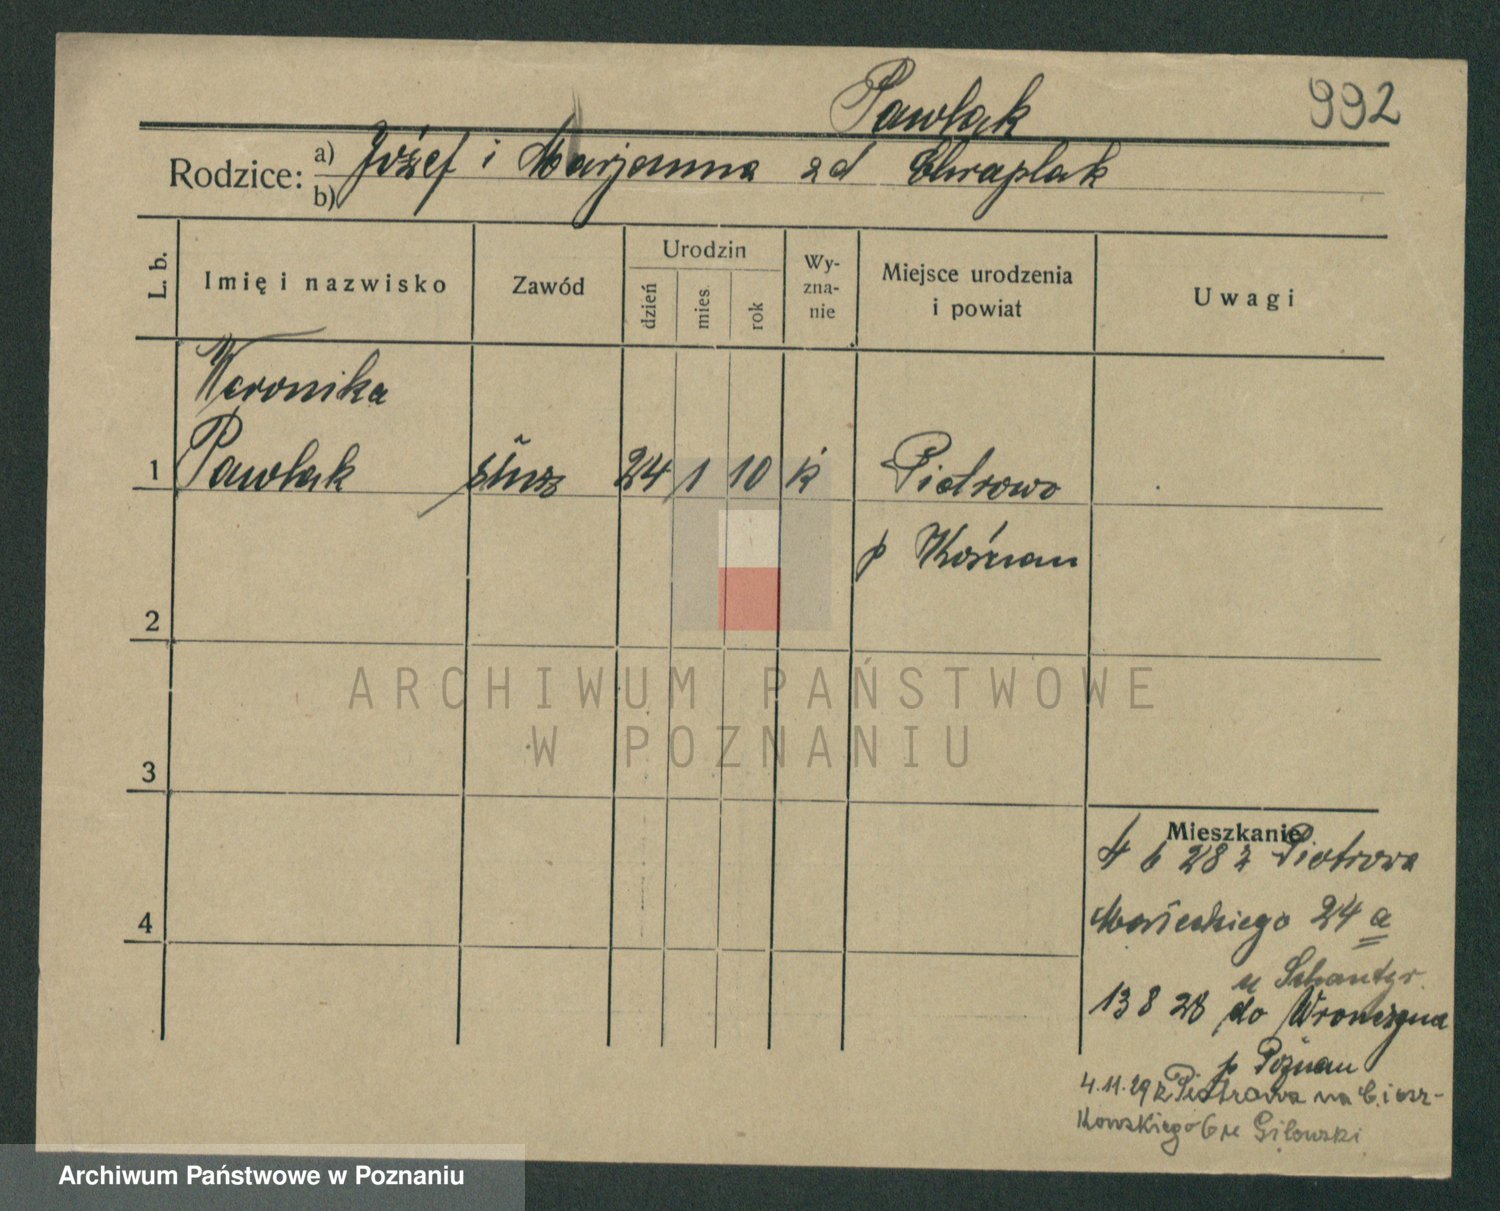 Pawlak 992
Rodzice: a) Józef i Marjanna zd Chraplak
b)
L. b. Imię i nazwisko Zawód Urodzin dzień mies. rok Wy-zna-nie Miejsce urodzenia i powiat Uwagi
Weronika
1 Pawlak służ 24 1 10 k Piotrowo
p
2
ARCHIWUM PAŃSTWOWE
W POZNANIU
3
Mieszkanie
4 6 28 z Piotrowa
24 a
4
u
13 8 28 do
p Poznan
4.11.29 z Piotrowa na Ciesz-
kowskiego 6 u Gilowski
Archiwum Państwowe w Poznaniu